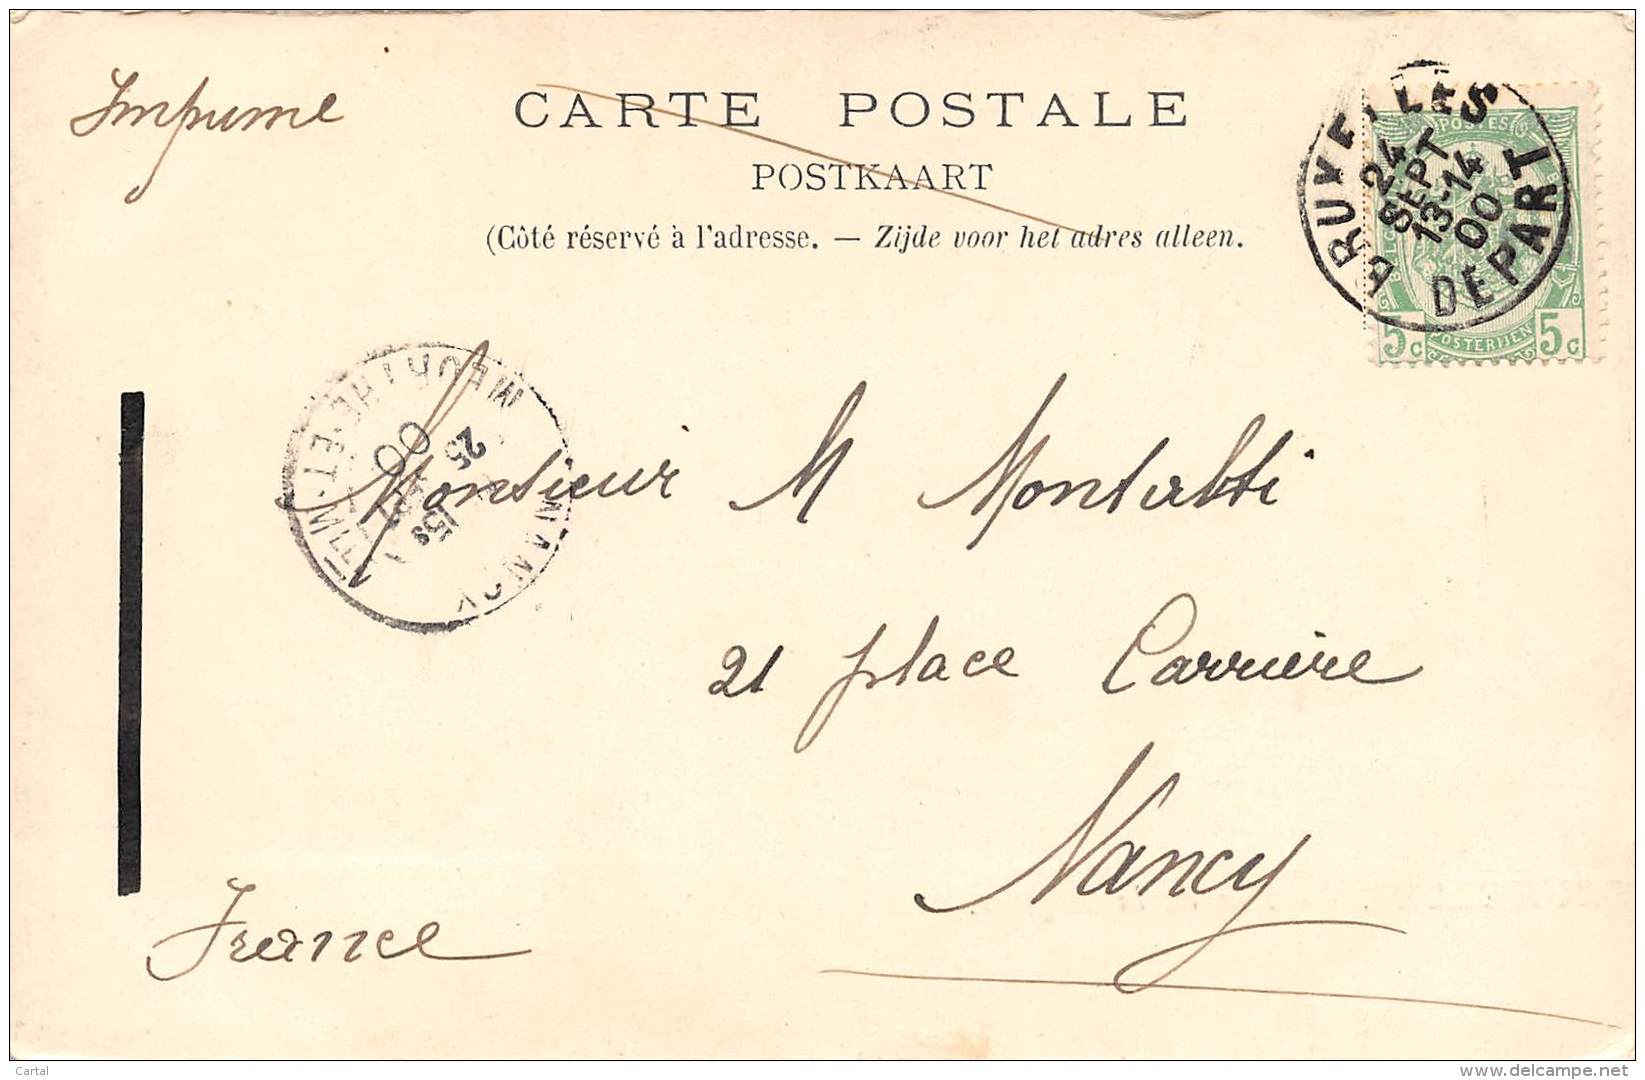 Imprimé
CARTE POSTALE
POSTKAART
(Côté réservé à l'adresse. — Zijde voor het adres alleen.
BRUXELLES
24
SEPT
13-14
00
DEPART
POSTES
POSTERIJEN
5c 5c
MEURTHE-ET-M
NANCY
25
00
Monsieur M
21 place Carrière
Nancy
France
Cartal
delcampe.net